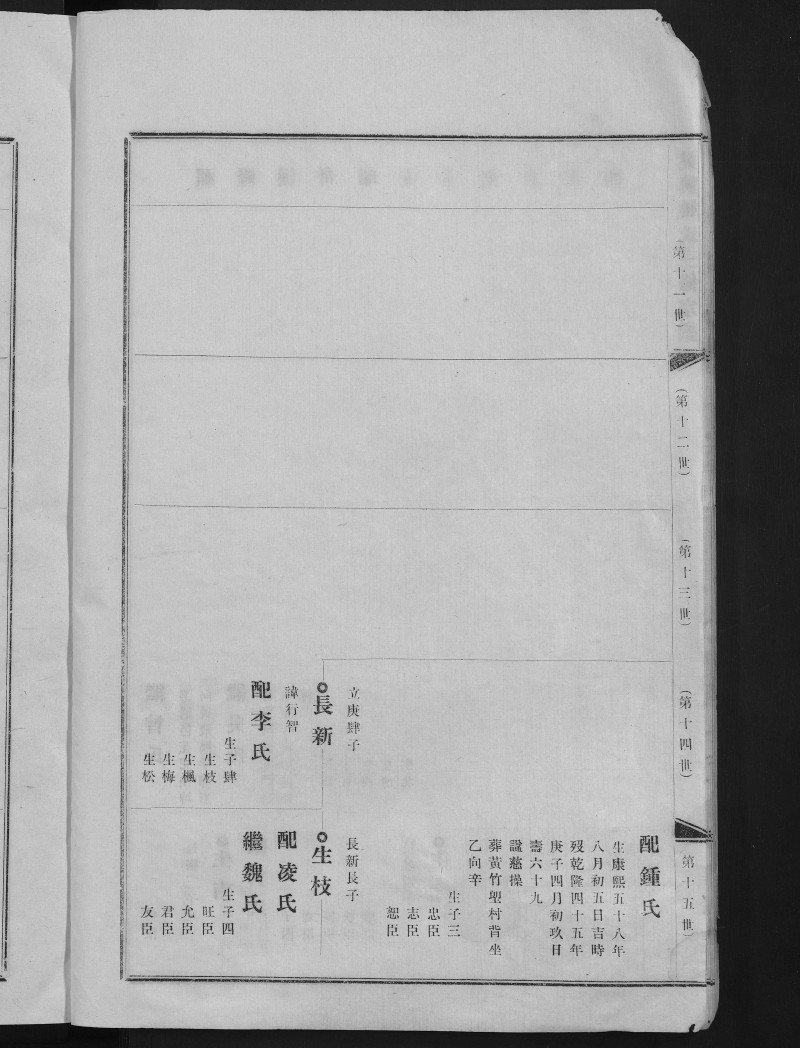 (第十一世)
(第十二世)
(第十三世)
(第十四世)
(第十五世)
立庚肆子
長新
諱行智
配李氏
生子肆
生枝
生楓
生梅
生松
配鍾氏
生康熙五十八年
八月初五日吉時
歿乾隆四十五年
庚子四月初玖日
壽六十九
諡慈操
葬黃竹塱村背坐
乙向辛
生子三
忠臣
志臣
恕臣
長新長子
生枝
配凌氏
繼魏氏
生子四
旺臣
允臣
君臣
友臣